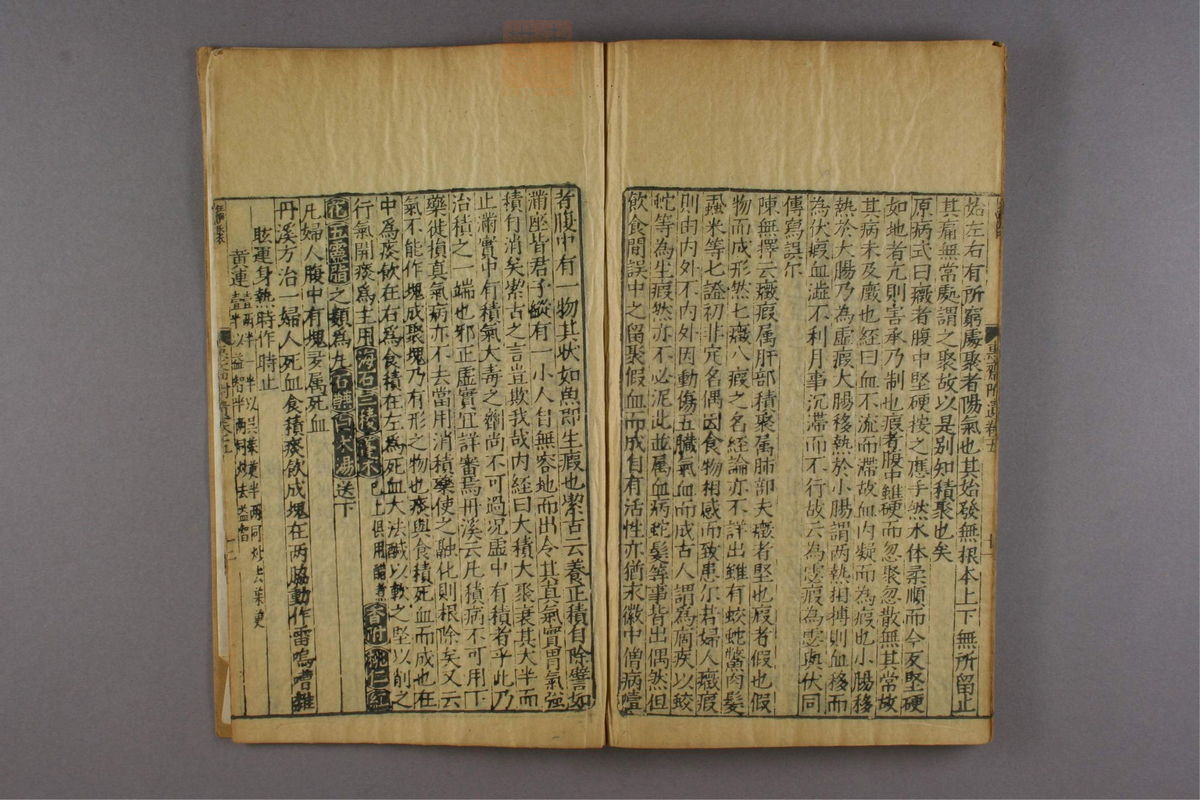 始左右有所窮處聚者陽氣也其始發無根本上下無所留止
其痛無常處謂之聚故以是別知積聚也矣
原病式曰癥者腹中堅硬按之應手然水体柔順而今反堅硬
如地者亢則害承乃制也瘕者腹中雖硬而忽聚忽散無其常故
其病未及癥也經曰血不流而滯故血内凝而為瘕也小腸移
熱於大腸乃為虙瘕大腸移熱於小腸謂兩熱相搏則血移而
為伏瘕血澁不利月事沉滯而不行故云為虙瘕為虙與伏同
傳寫誤尔
陳無擇云癥瘕属肝部積聚属肺部夫癥者堅也瘕者假也假
物而成形然七癥八瘕之名經論亦不詳出雖有蛟蛇鱉肉髮
虱米等七證初非定名偶因食物相感而致患尔若婦人癥瘕
則由内外不内外因動傷五臟氣血而成古人謂為痼疾以蛟
蛇等為生瘕然亦不必泥此並属血病蛇髮等事皆出偶然但
飲食間誤中之留聚假血而成自有活性亦猶宋徽中僧病噎
者腹中有一物其狀如魚即生瘕也潔古云養正積自除譬如
滿座皆君子縱有一小人自無容地而出今其真氣實胃氣強
積自消矣潔古之言豈欺我哉内經曰大積大聚衰其大半而
止滿實中有積氣大毒之劑尚不可過况虚中有積者乎此乃
治積之一端也邪正虚實宜詳審焉丹溪云凡積病不可用下
藥徙損真氣病亦不去當用消積藥使之融化則根除矣又云
氣不能作塊成聚塊乃有形之物也痰與食積死血而成也在
中為痰飲在右為食積在左為死血大法醎以軟之堅以削之
行氣開痰為主用海石三稜莪朮已上俱用醋煮香附桃仁紅
花五靈脂之類為丸石醎白朮湯送下
凡婦人腹中有塊多属死血
丹溪方治一婦人死血食積痰飲成塊在两脇動作雷鳴嘈雜
眩運身熱時作時止
黄連一兩半一半以吳茱萸半两同炒去茱萸一半以益智半两同炒去益智